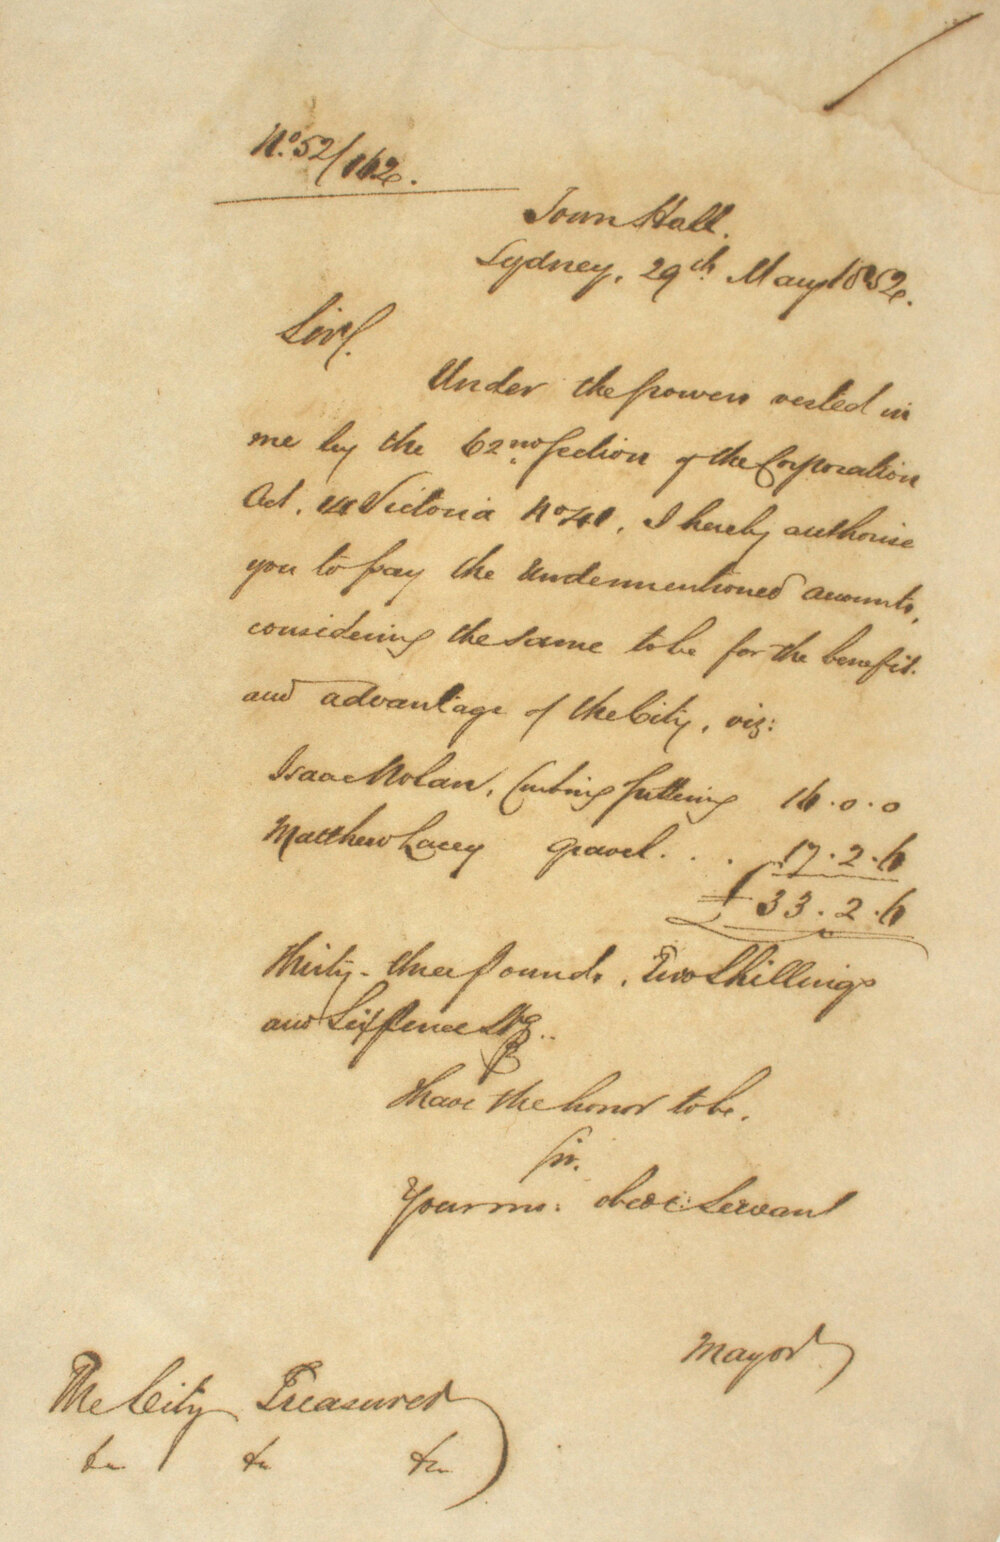 No. 52/162.
Town Hall.
Sydney, 29th May 1852.
Sir/.
Under the powers vested in
me by the 62nd Section of the Corporation
Act, 14 Victoria No 41, I hereby authorise
you to pay the undermentioned accounts,
considering the same to be for the benefit
and advantage of the City, viz:
Isaac Nolan, Curbing & guttering 16.0.0
Matthew Lacey gravel . . . 17.2.6
£33.2.6
Thirty-three pounds, Two Shillings
and Six pence Stg..
I have the honor to be,
Sir,
Your mo: obedt: Servant
Mayor
The City Treasurer
&c &c &c